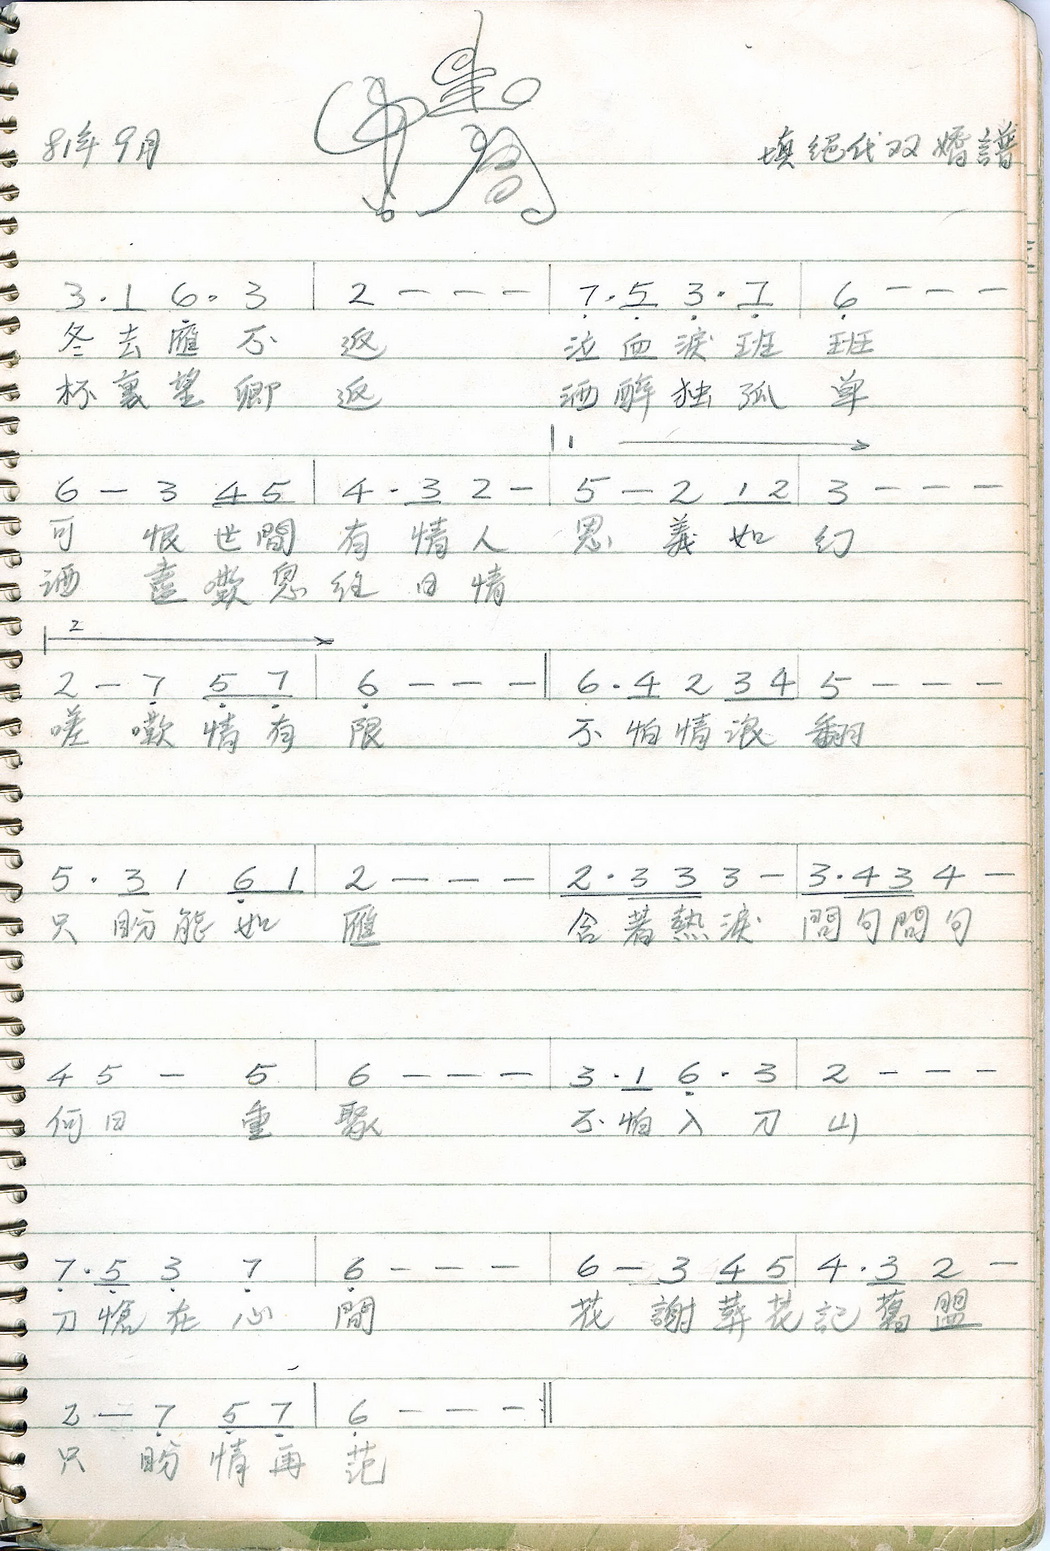 81年9月
填絕代双嬌譜
3·1 6·3 | 2 - - - | 7·5 3·7 | 6 - - -
冬去雁不返 泣血淚班班
杯裏望卿返 洒醉独孤单
1
6 - 3 45 | 4·3 2 - | 5 - 2 12 | 3 - - -
可恨世間有情人 恩義如幻
洒 數恩 日情
2
2 - 7 57 | 6 - - - ‖ 6·4 2 34 | 5 - - -
嗟嘆情有限 不怕情浪翻
5·3 1 61 | 2 - - - | 2·33 3 - | 3·43 4 -
只盼能如雁 含著熱淚問句問句
4 5 - 5 | 6 - - - | 3·1 6·3 | 2 - - -
何日重聚 不怕入刀山
7·5 3 7 | 6 - - - | 6 - 3 45 | 4·3 2 -
刀愴在心間 花謝葬花記舊盟
2 - 7 57 | 6 - - - ‖
只盼情再范